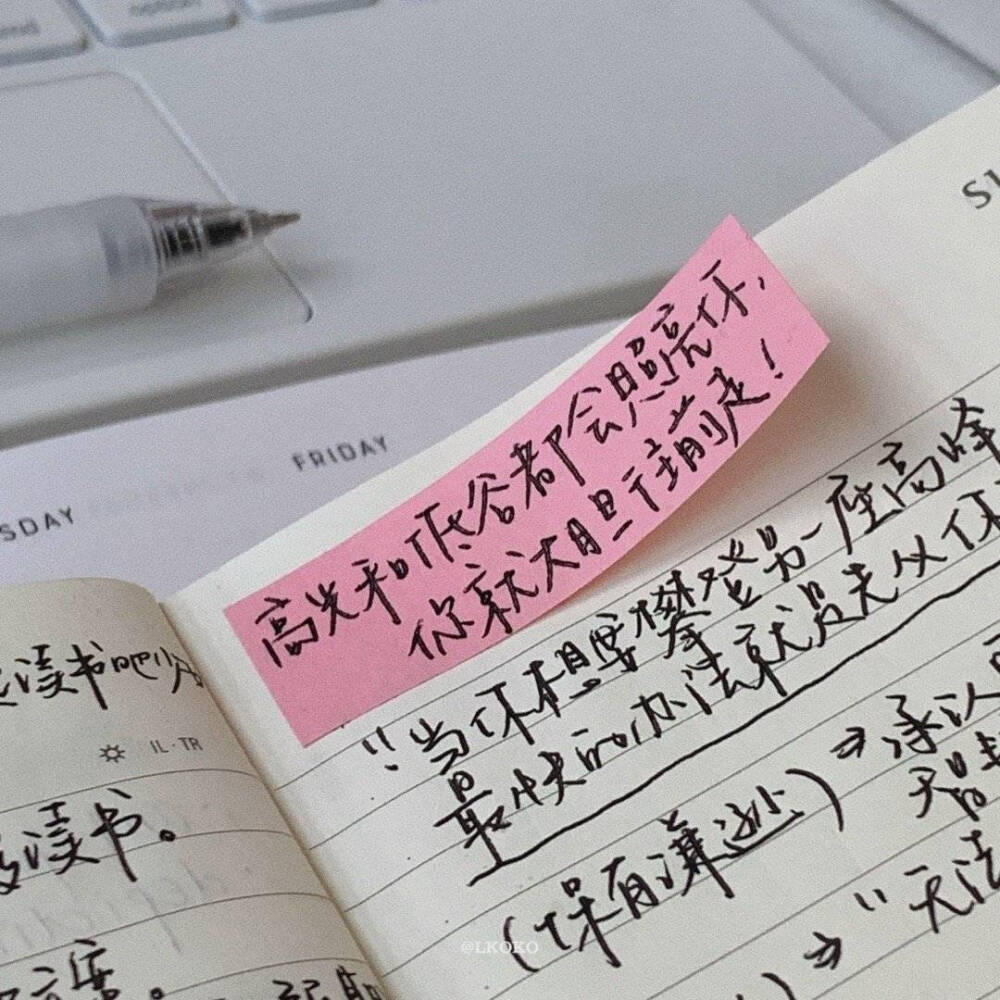 option
FRIDAY
SDAY
高光和低谷都会照亮你,
你就大胆往前走!
"当你想要攀登另一座高峰
最快的办法就是先从你
(保有谦逊) → 承认
→ "无法
读书吧
IL·TR
读书。
@LKOKO